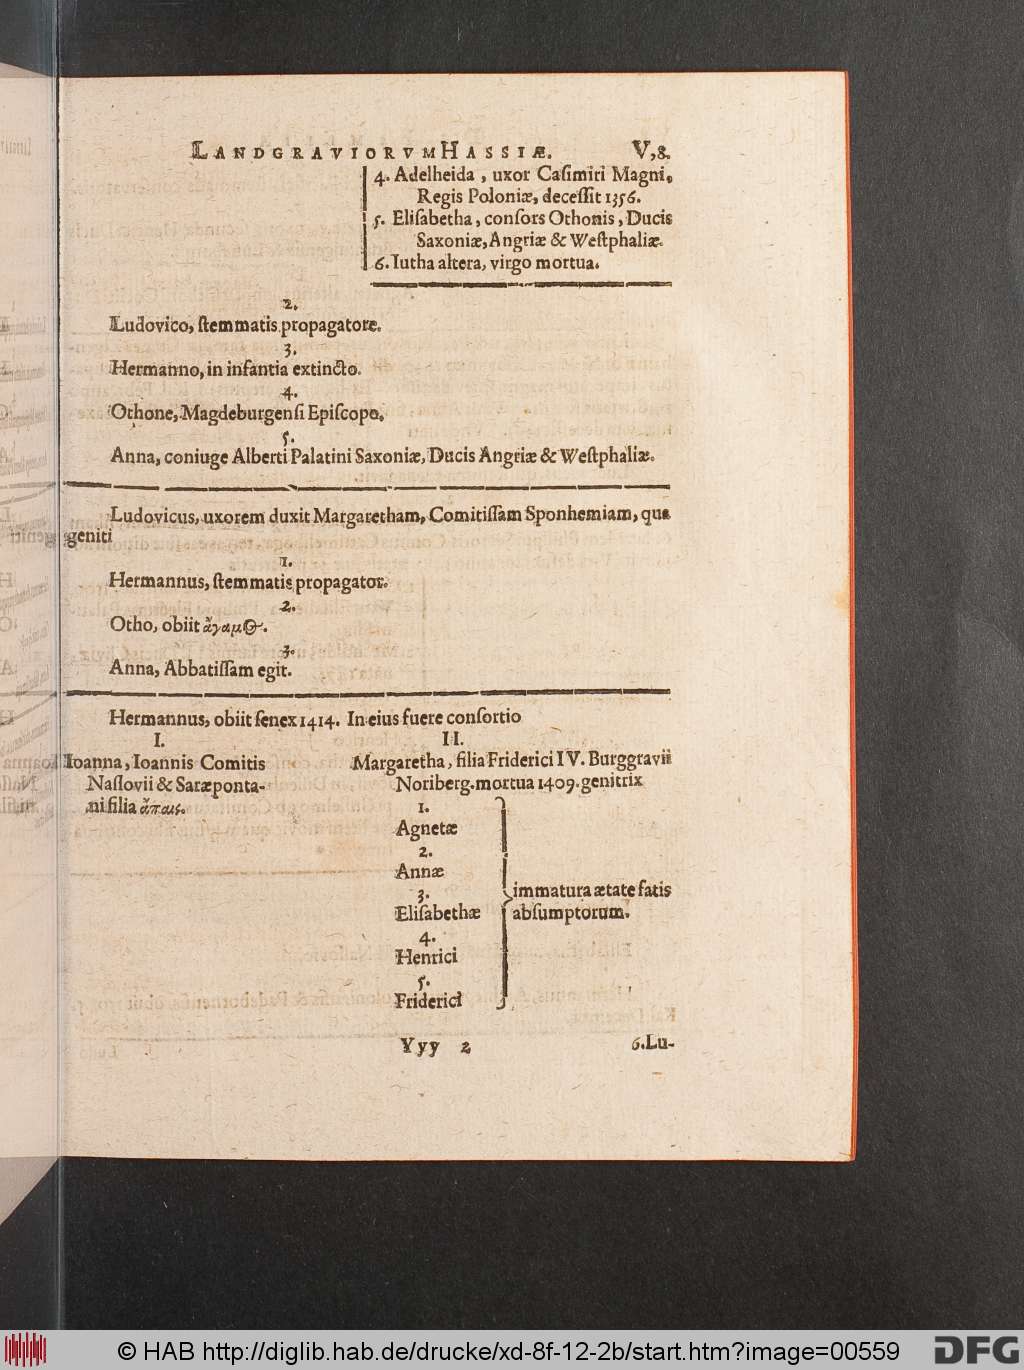 LANDGRAVIORVM HASSIÆ. V,8.
4. Adelheida, uxor Caſimiri Magni,
Regis Poloniæ, deceſſit 1356.
5. Eliſabetha, conſors Othonis, Ducis
Saxoniæ, Angriæ & Weſtphaliæ.
6. Iutha altera, virgo mortua.
2.
Ludovico, ſtemmatis propagatore.
3.
Hermanno, in infantia extincto.
4.
Othone, Magdeburgenſi Epiſcopo.
5.
Anna, coniuge Alberti Palatini Saxoniæ, Ducis Angriæ & Weſtphaliæ.
Ludovicus, uxorem duxit Margaretham, Comitiſſam Sponhemiam, qua
geniti
1.
Hermannus, ſtemmatis propagator.
2.
Otho, obiit ἄγαμος.
3.
Anna, Abbatiſſam egit.
Hermannus, obiit ſenex 1414. In eius fuere conſortio
I. II.
Ioanna, Ioannis Comitis Margaretha, filia Friderici IV. Burggravii
Naſſovii & Saræponta- Noriberg. mortua 1409. genitrix
ni filia ἄπαις. 1.
Agnetæ
2.
Annæ
3. immatura ætate fatis
Eliſabethæ abſumptorum.
4.
Henrici
5.
Friderici
Yyy 2 6. Lu-
© HAB http://diglib.hab.de/drucke/xd-8f-12-2b/start.htm?image=00559 DFG